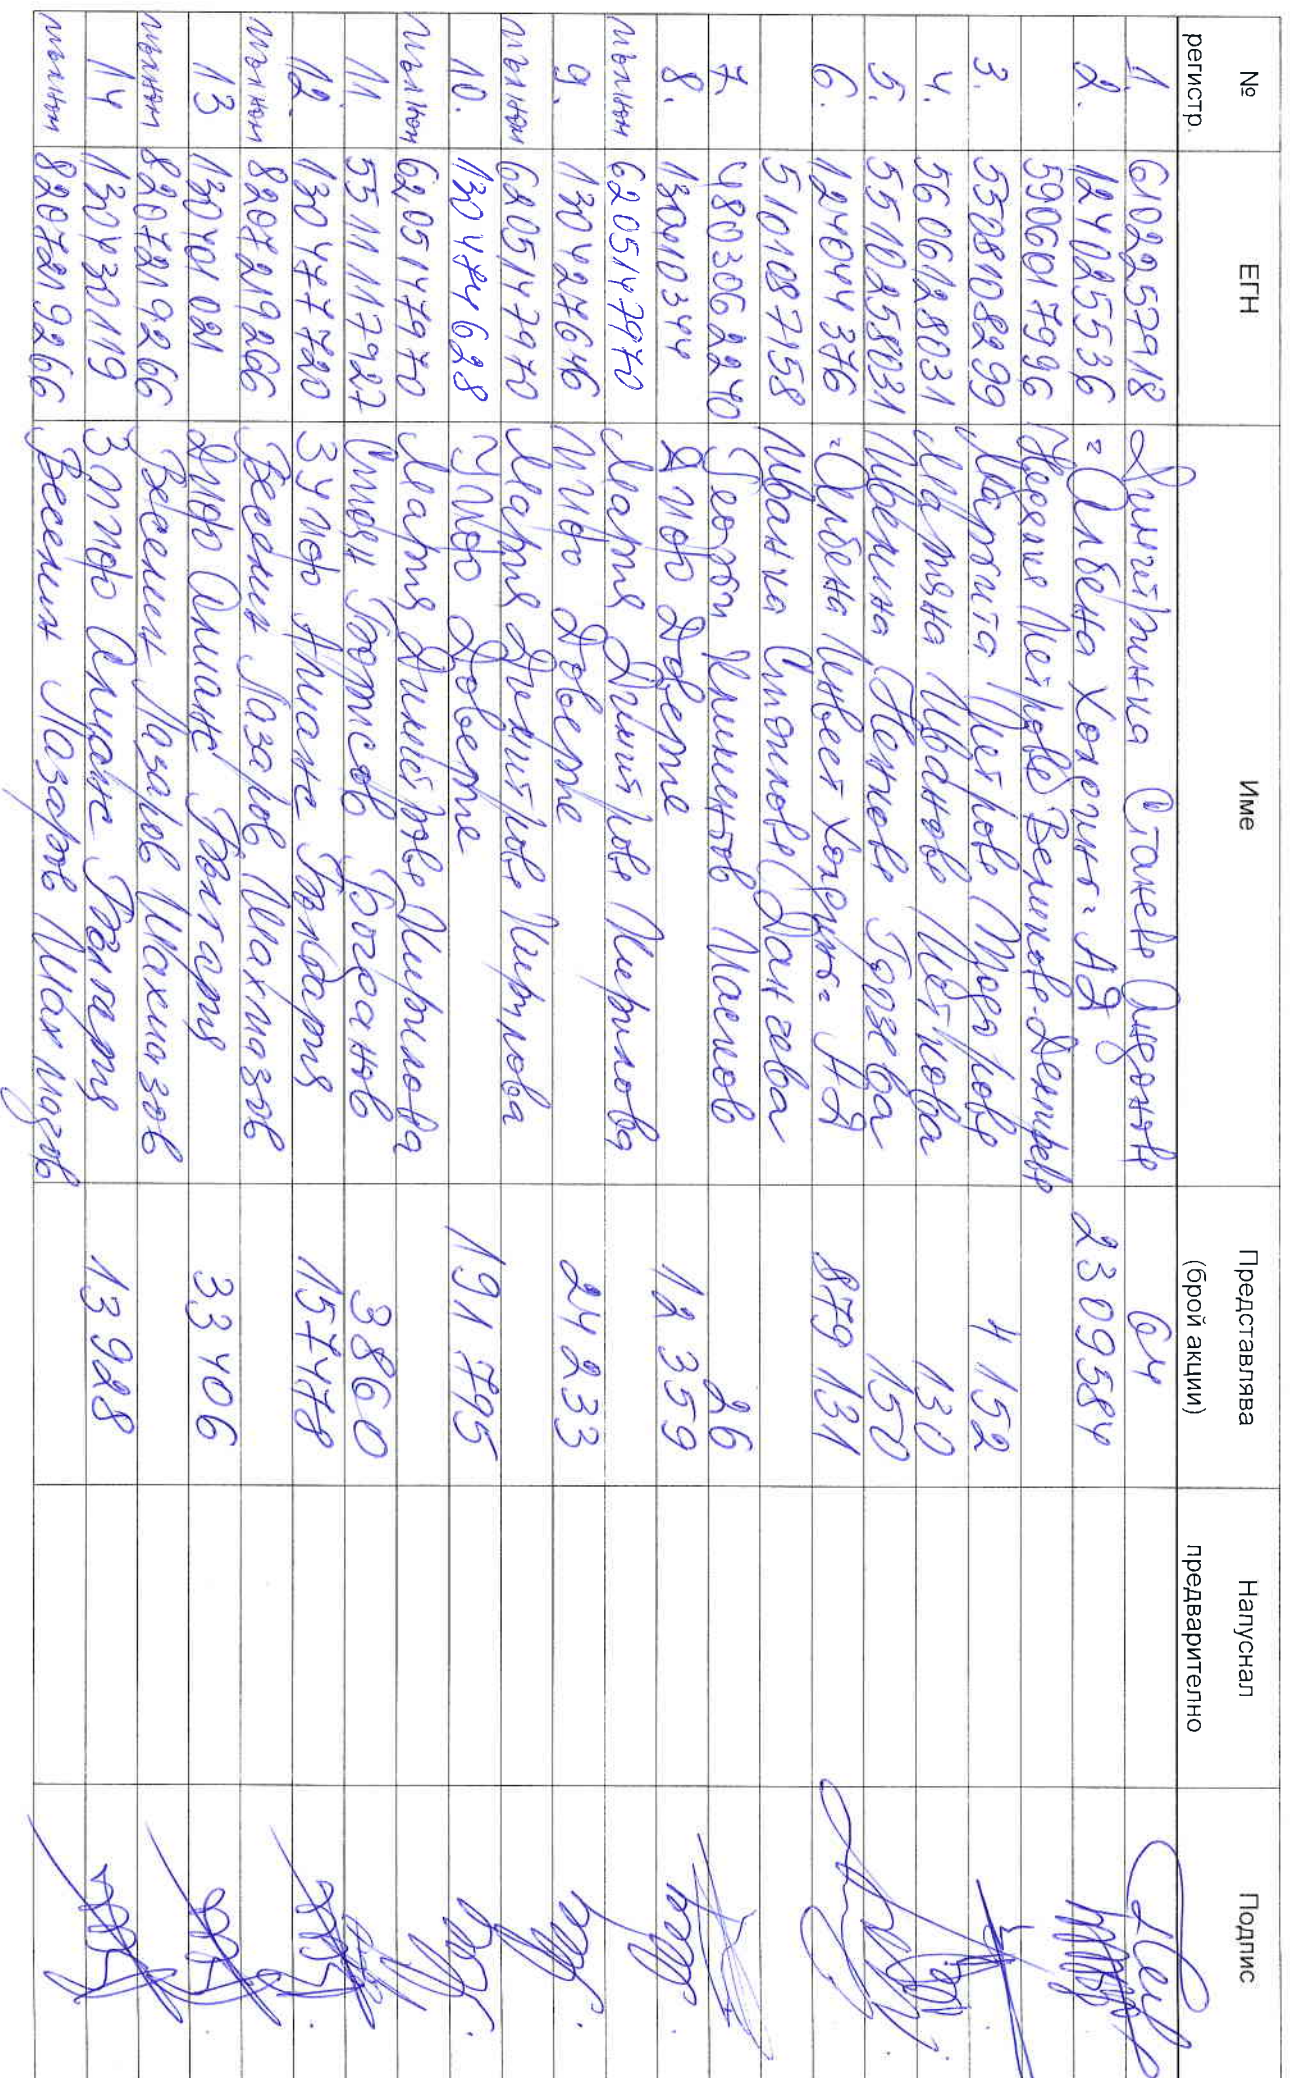 № регистр. ЕГН Име Представлява (брой акции) Напуснал предварително Подпис
1. 6102257918 Димитринка Станева Андонова 64
2. 124025536 "Албена Холдинг" АД 2309584
5906017996 Недялка Петкова Великова-Демирева
3. 5508108299 Маргарита Петкова 4152
4. 5606128031 Марияна Иванова Петкова 130
5. 5510258031 Ивелина Ненкова Грозева 150
6. 124044376 "Албена Инвест Холдинг" АД 879131
5101087158 Иванка Стойкова Данчева
7. 4803062240 Георги Климентов 26
8. 130410344 ДПФ Доверие 12359
пълном 6205147970 Мария Димитрова Кирилова
9. 130427646 ППФ Доверие 24233
пълном 6205147970 Мария Димитрова Кирилова
10. 130474628 УПФ Доверие 191795
пълном 6205147970 Мария Димитрова Кирилова
11. 5511117927 Стоян Борисов Богданов 3860
12. 130477720 ЗУПФ Алианц България 157478
пълном 8207219266 Веселин Лазаров Шахмазов
13 130401021 ДПФ Алианс България 33406
пълном 8207219266 Веселин Лазаров Шахмазов
14 130430119 ЗППФ Алианс България 13928
пълном 8207219266 Веселин Лазаров Шахмазов